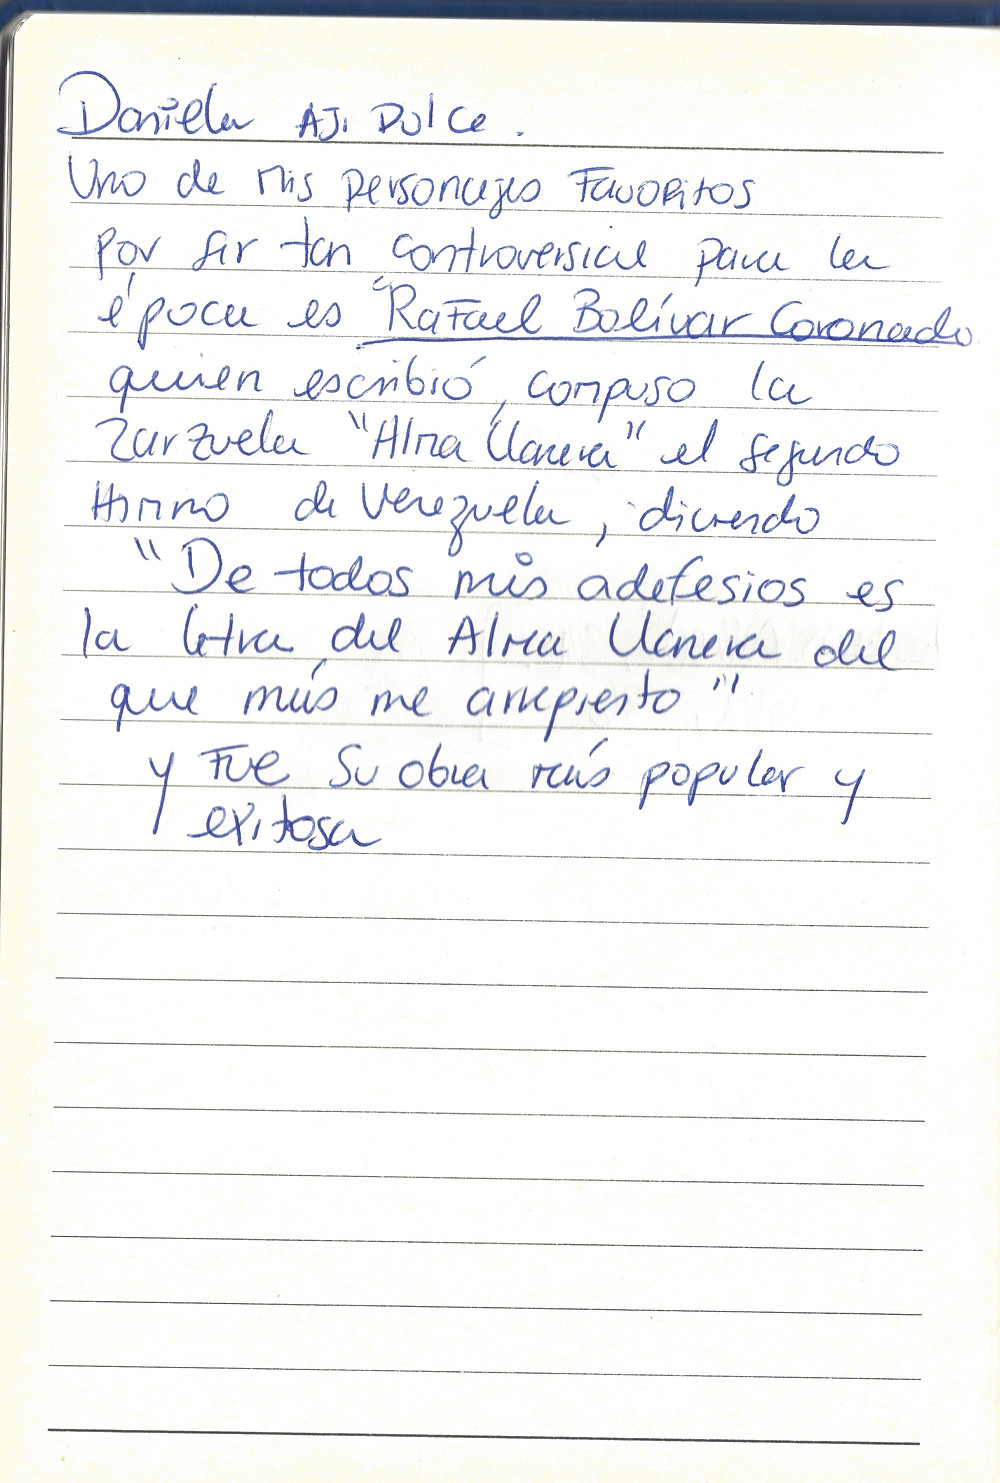 Daniela AJi Dulce.
Uno de mis personajes Favoritos
por ser tan controversial para la
época es "Rafael Bolívar Coronado
quien escribió, compuso la
zarzuela "Alma Llanera" el segundo
Himno de Venezuela, diciendo
"De todos mis adefesios es
la letra del Alma Llanera del
que más me arrepiento"
y FUE su obra más popular y
exitosa